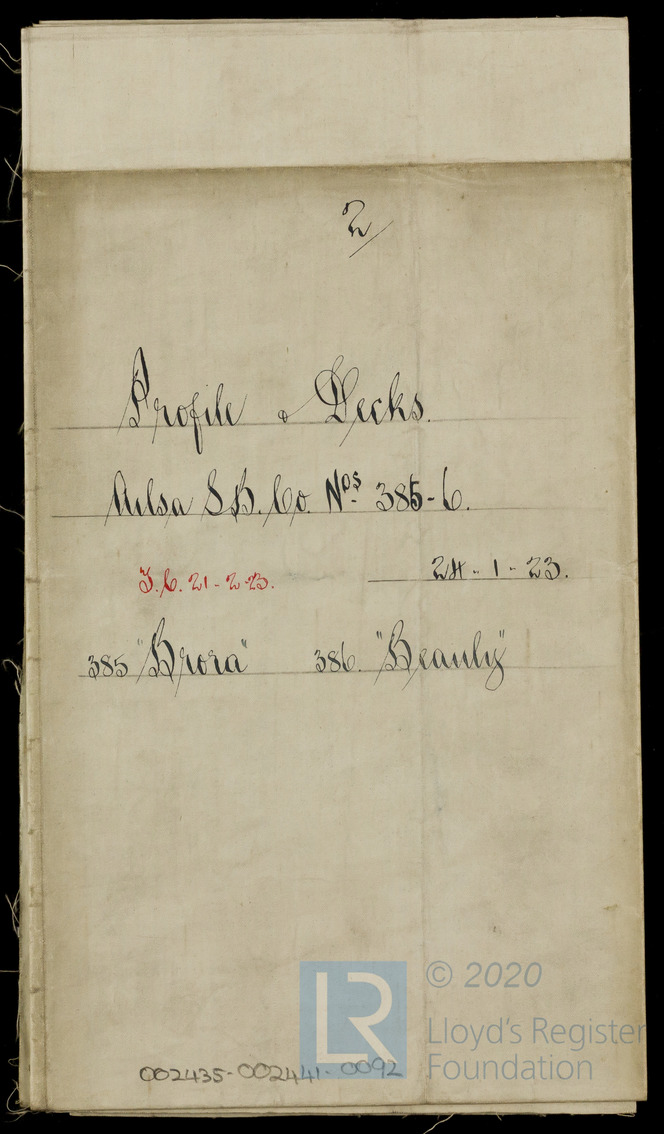 2/
Profile & Decks.
Ailsa S.B. Co. Nos 385-6.
T.C. 21-2-23.
24-1-23.
385 "Brora" 386. "Beauly"
© 2020
LR
Lloyd's Register
Foundation
002435-002441-0092